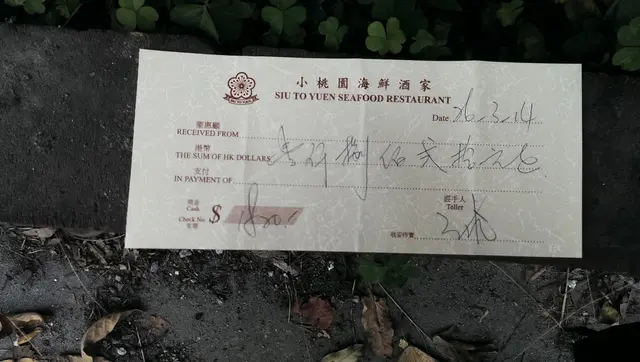 小桃園海鮮酒家
SIU TO YUEN SEAFOOD RESTAURANT
SIU TO YUEN
Date 26-3-14
蒙惠顧
RECEIVED FROM
港幣
THE SUM OF HK DOLLARS 壹仟捌佰貳拾元正
支付
IN PAYMENT OF
現金
Cash
Check No.
支票
$ 1820.
經手人
Teller